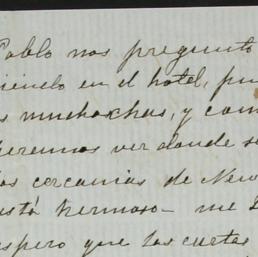 Pablo nos pregunto
en el hotel,
muchachas, y com
eremos ver donde s
as cercanias de New
está hermoso - me
spero que las cartas